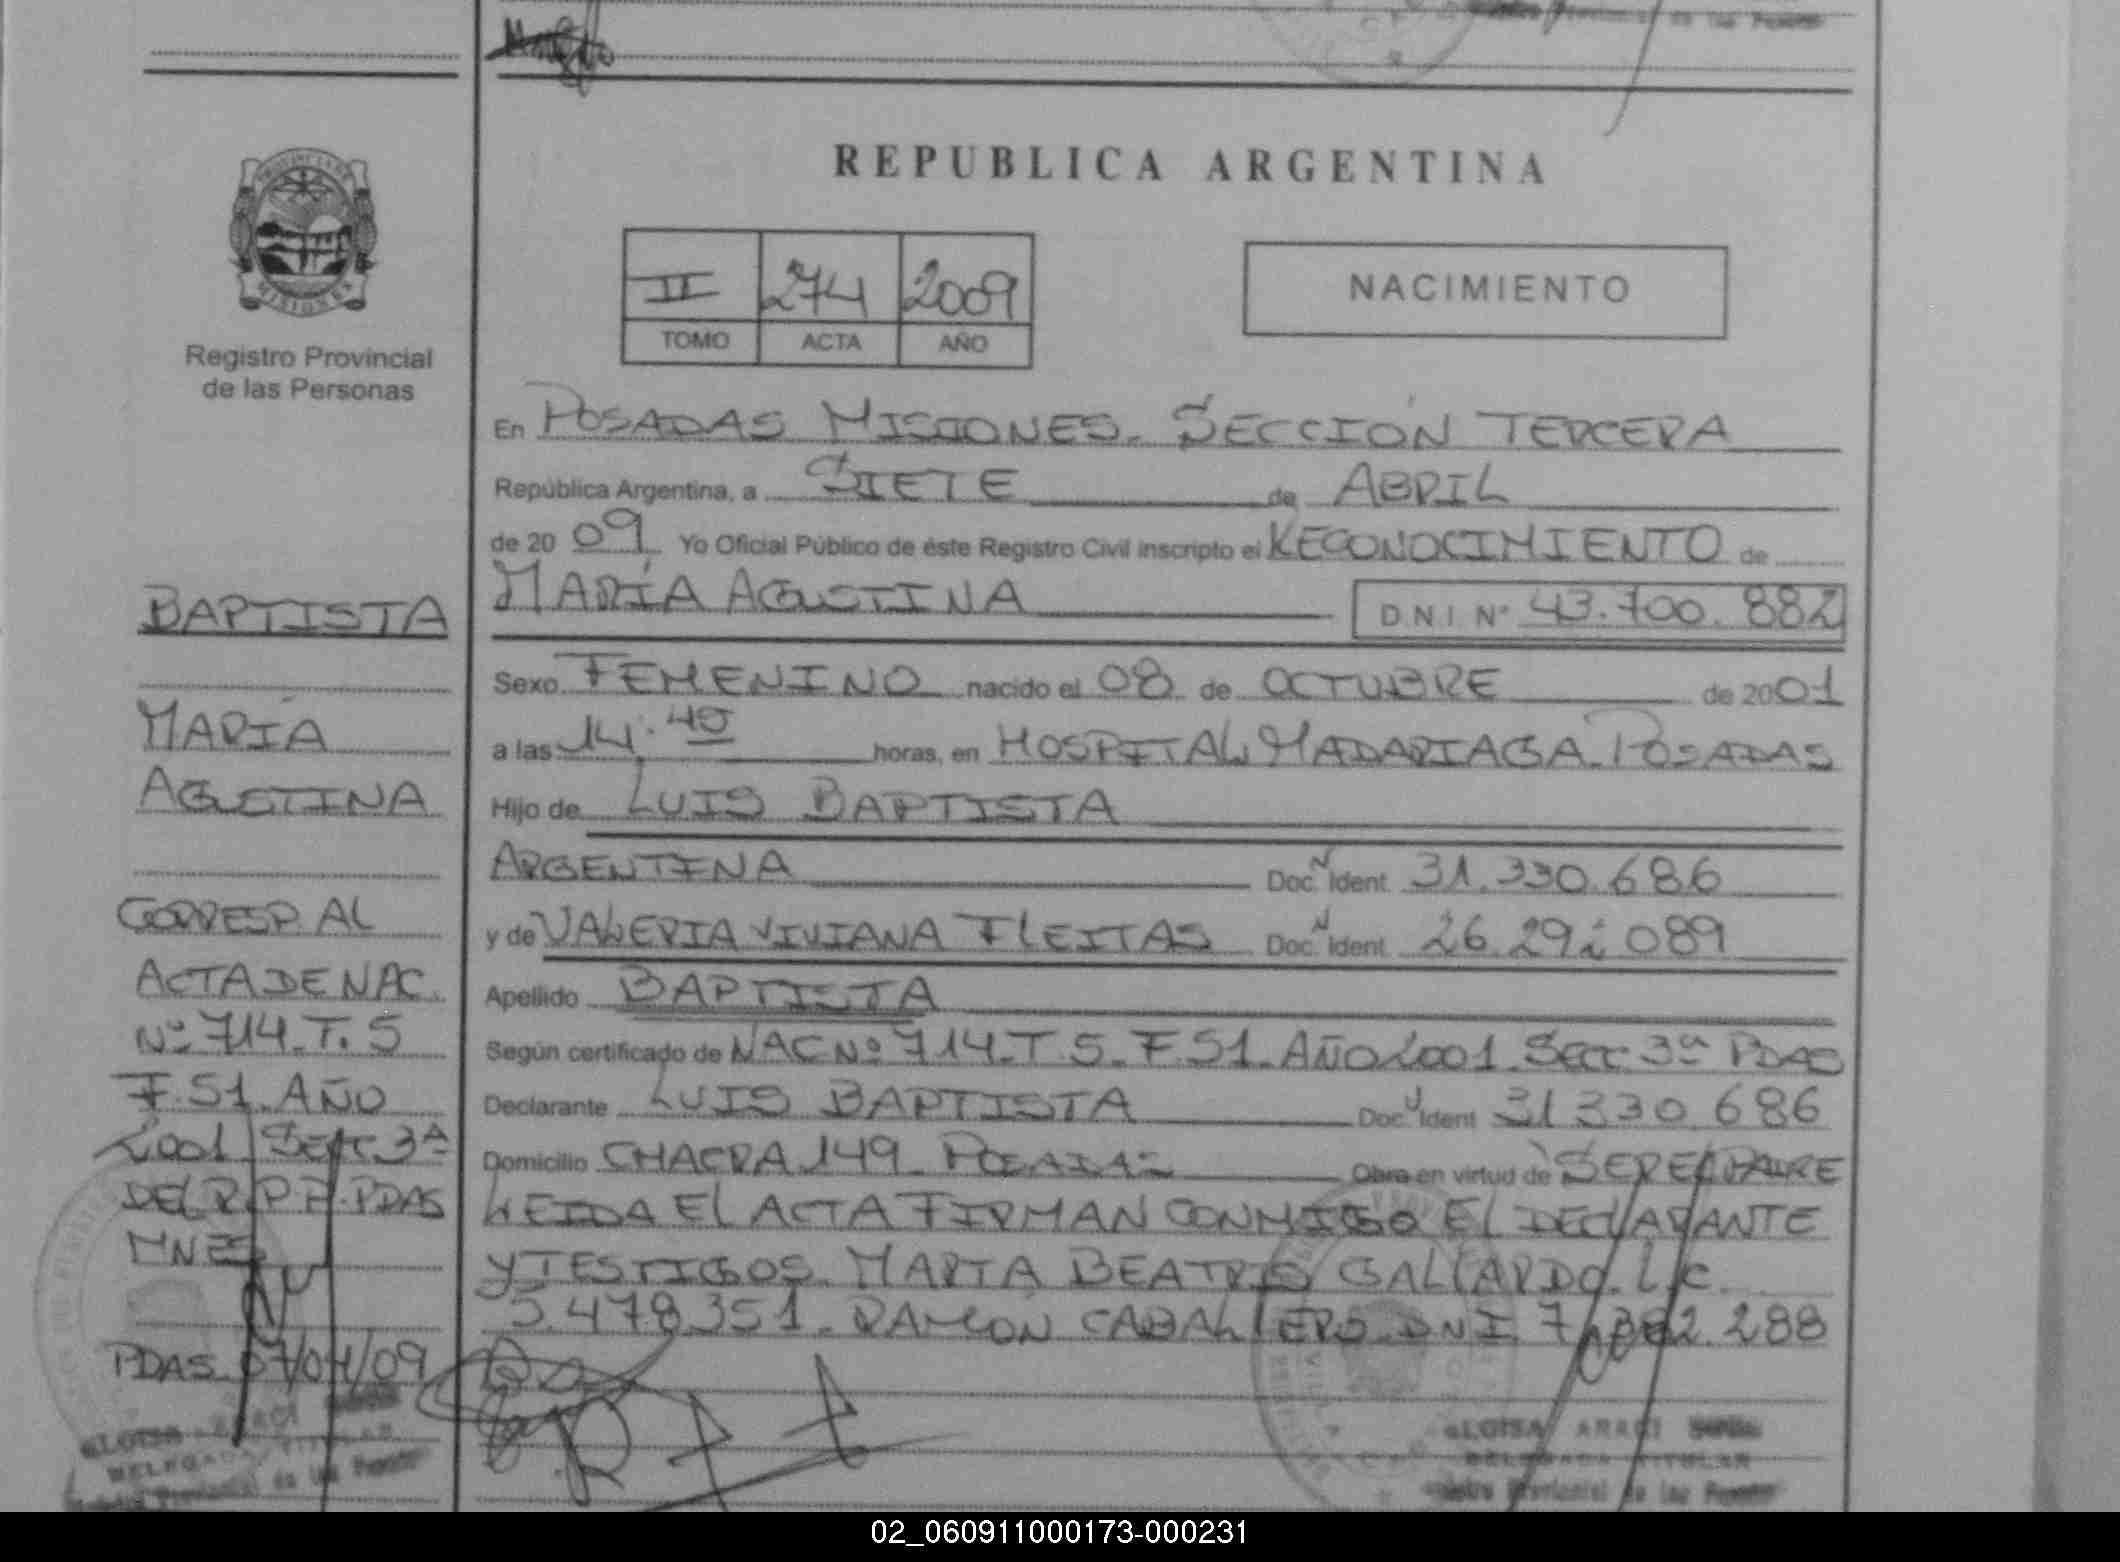 REPUBLICA ARGENTINA
II 274 2009
TOMO ACTA AÑO
NACIMIENTO
PROVINCIA DE
MISIONES
Registro Provincial
de las Personas
BAPTISTA
MARÍA
AGUSTINA
CORRESP. AL
ACTA DE NAC.
Nº 714. T. 5
F. 51. AÑO
2001 SECC. 3ª
DEL R.P.P. PDAS
MNES
PDAS. 07/04/09
ELOISA ARACI
DELEGADA TITULAR
Provincial de las
En POSADAS MISIONES. SECCIÓN TERCERA
República Argentina, a SIETE de ABRIL
de 20 09 Yo Oficial Público de éste Registro Civil inscripto el RECONOCIMIENTO de
MARÍA AGUSTINA D N I Nº 43.700.882
Sexo FEMENINO nacido el 08 de OCTUBRE de 2001
a las 14:40 horas, en HOSPITAL MADARIAGA. POSADAS
Hijo de LUIS BAPTISTA
ARGENTINA Doc. Ident 31.330.686
y de VALERIA VIVIANA FLEITAS Doc. Ident 26.292.089
Apellido BAPTISTA
Según certificado de NAC Nº 714. T. 5. F. 51. AÑO 2001. SECC. 3ª PDAS
Declarante LUIS BAPTISTA Doc. Ident 31 330 686
Domicilio CHACRA 149. POSADAS Obra en virtud de SER EL PADRE
LEIDA El ACTA FIRMAN CONMIGO El DECLARANTE
Y TESTIGOS. MARIA BEATRIS GALLARDO. L.C.
5.478.351. RAMÓN CABALLERO. DNI. 288
ELOISA ARACI
DELEGADA TITULAR
Provincial de las
02_060911000173-000231